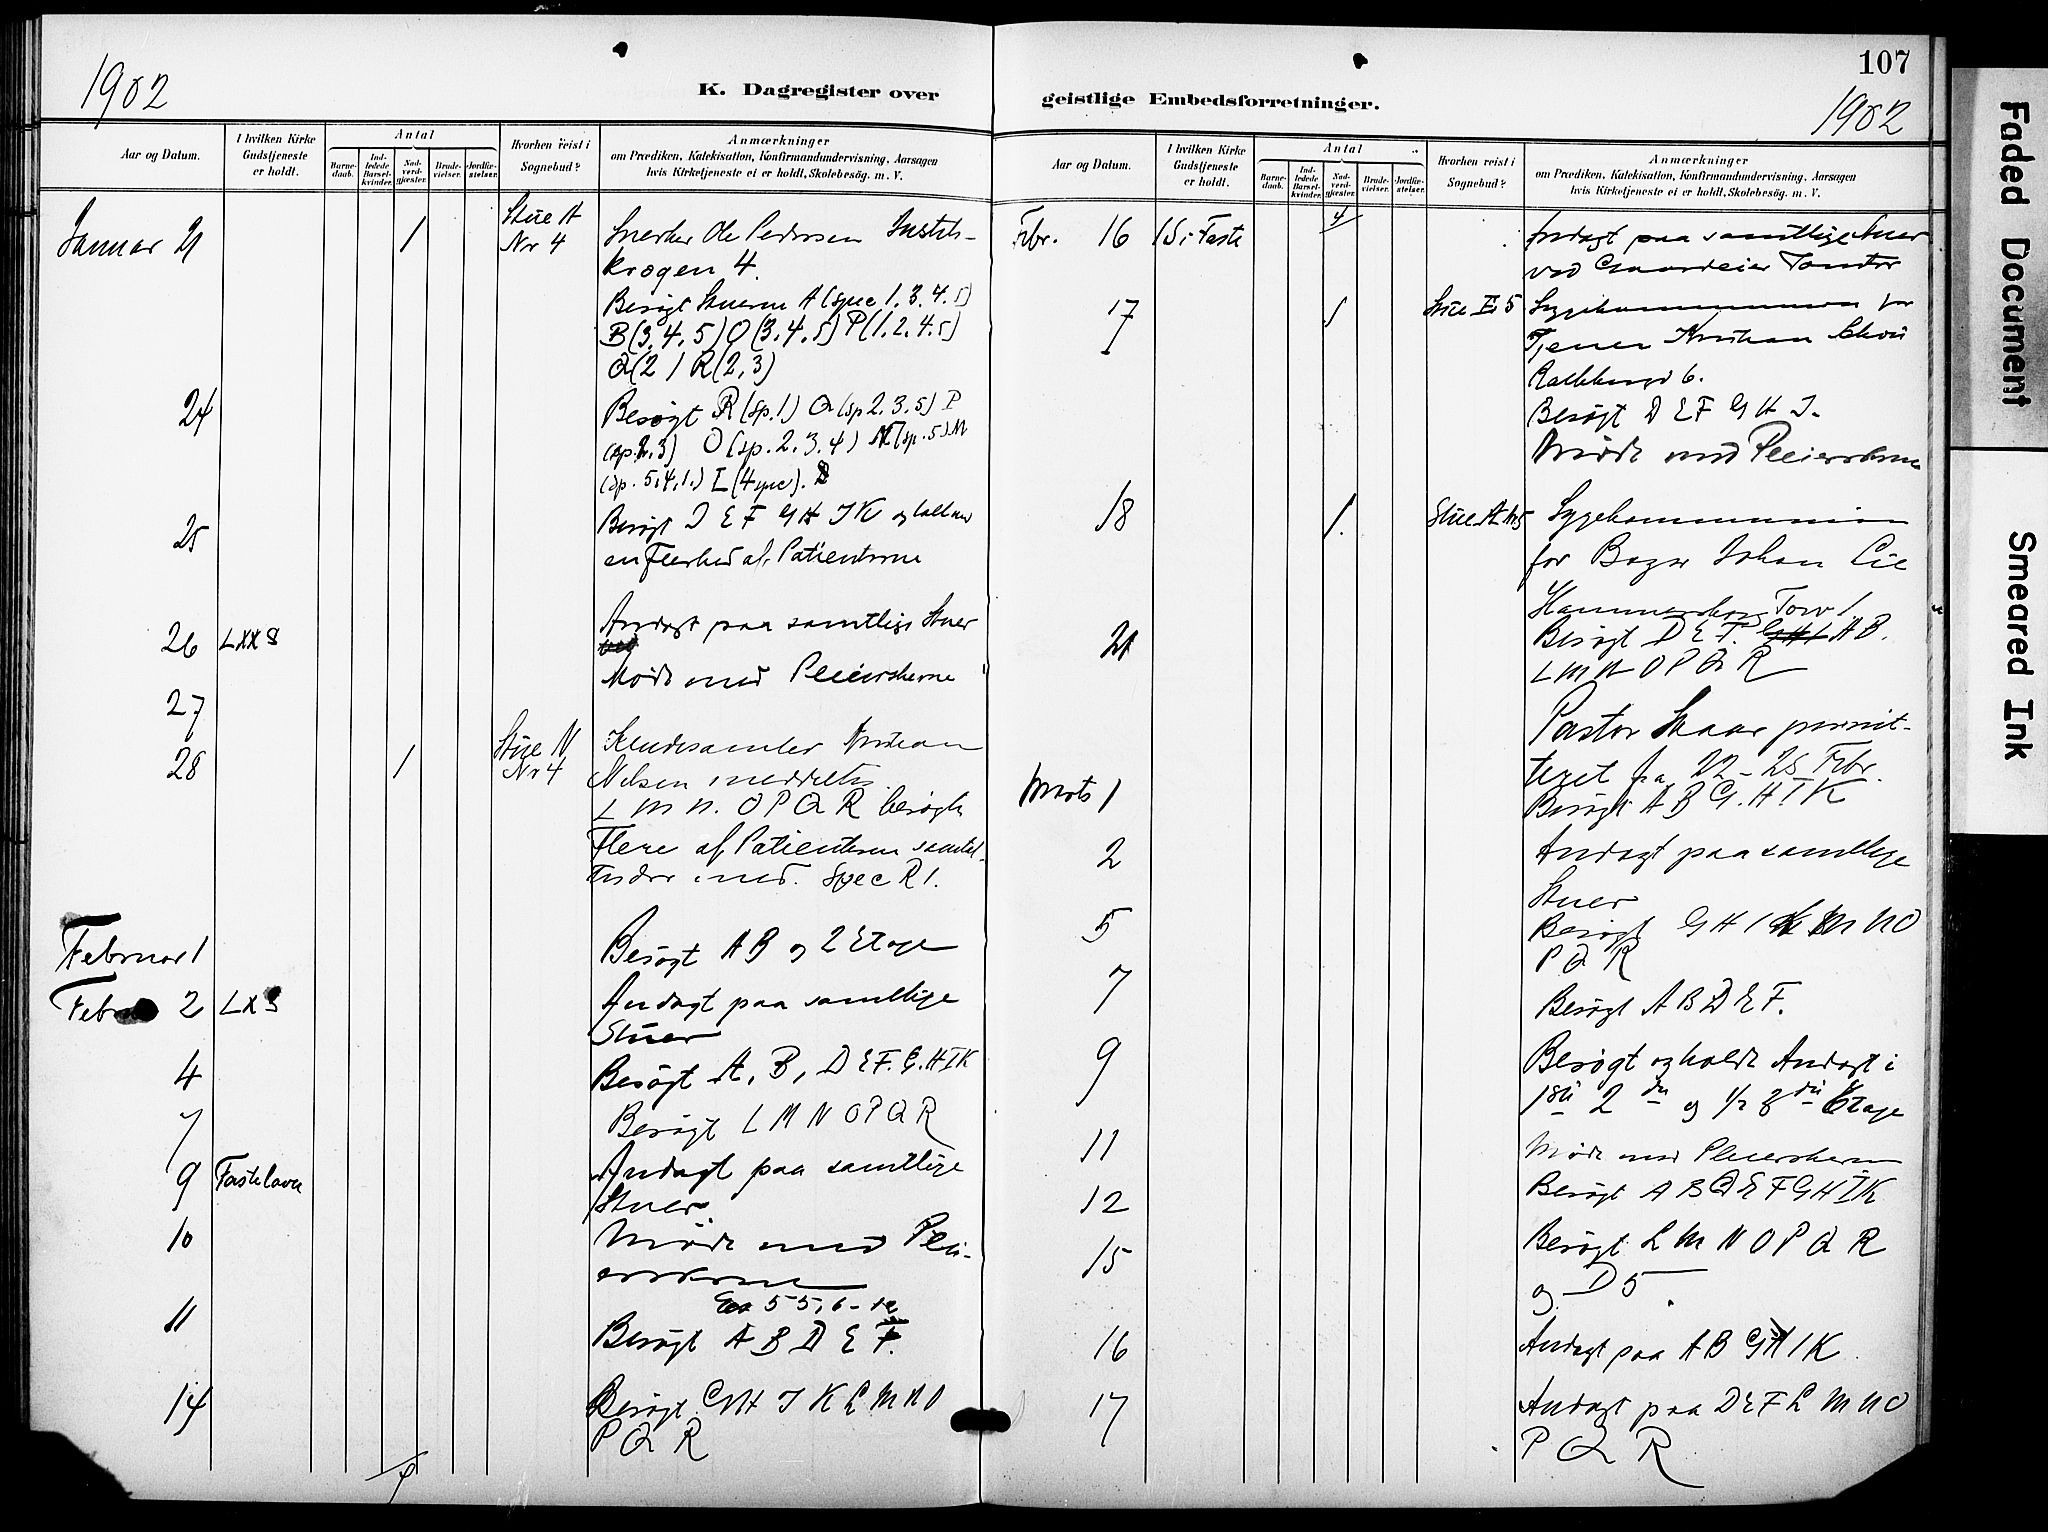 1902
K. Dagregister over
Aar og Datum.
I hvilken Kirke Gudstjeneste er holdt.
Antal
Barne-daab.
Ind-ledede Barsel-kvinder.
Nad-verd-gjæster.
Brude-vielser.
Jordfæ-stelser.
Hvorhen reist i Sognebud?
Anmærkninger
om Prædiken, Katekisation, Konfirmandundervisning, Aarsagen
hvis Kirketjeneste ei er holdt, Skolebesøg. m. V.
Januar 21 1 Stue A Nr 4 Snerker Ole Pedersen
krogen 4.
Besøgt Stuerne A (spec 1. 3. 4. 5)
B (3. 4. 5) O (3. 4. 5) P (1. 2. 4. 5)
Q (2) R (2, 3)
24 Besøgt R (sp. 1) Q (sp 2. 3. 5) P
(sp. 2. 3) O (sp. 2. 3. 4) N (sp. 5) M
(sp. 5, 4, 1.) L (4 spec).
25 Besøgt D E F G H I K og
en Flerhed af Patienterne
26 LXX S Andagt paa samtlige Stuer
27 Møde med Pleierskerne
28 1 Stue N Nr 4 Kludesamler
Nilsen
L M N. O P Q R besøgt
Flere af Patienterne samtal-
med. Spec R 1.
Februar 1 Besøgt A B og 2 Etage
Febr 2 LX S Andagt paa samtlige
Stuer
4 Besøgt A, B, D E F. G. H I K
7 Besøgt L M N O P Q R
9 Fastelavn Andagt paa samtlige
Stuer
10 Møde med Plei-
erskerne
11 Besøgt A B D E F.
14 Besøgt G H I K L M N O
P Q R
107
1902
geistlige Embedsforretninger.
Aar og Datum.
I hvilken Kirke Gudstjeneste er holdt.
Antal
Barne-daab.
Ind-ledede Barsel-kvinder.
Nad-verd-gjæster.
Brude-vielser.
Jordfæ-stelser.
Hvorhen reist i Sognebud?
Anmærkninger
om Prædiken, Katekisation, Konfirmandundervisning, Aarsagen
hvis Kirketjeneste ei er holdt, Skolebesøg. m. V.
Febr. 16 1 S i Faste 4 Andagt paa samtlige Stuer
ved Gaardeier
17 1 Stue E 5 Sygekommunion for
Tjener Kristian
6.
Besøgt D E F G H I.
Møde med Pleierskerne
18 1. Stue A Nr 5 Sygekommunion
for Bager Johan Lie
Hammersborg Torv 1
21 Besøgt D E F. G H I A B.
L M N O P Q R
Pastor Skaar permit-
teret fra 22 - 28 Febr.
Marts 1 Besøgt A B G. H I K
2 Andagt paa samtlige
Stuer
5 Besøgt G H I K L M N O
P Q R
7 Besøgt A B D E F.
9 Besøgt og holdt Andagt i
1ste 2den og 1/2 3die Etage
11 Møde med Pleierskerne
12 Besøgt A B D E F G H I K
15 Besøgt L M N O P Q R
og D 5
16 Andagt paa A B G H I K
17 Andagt paa D E F L M N O
P Q R
Faded Document
Smeared Ink